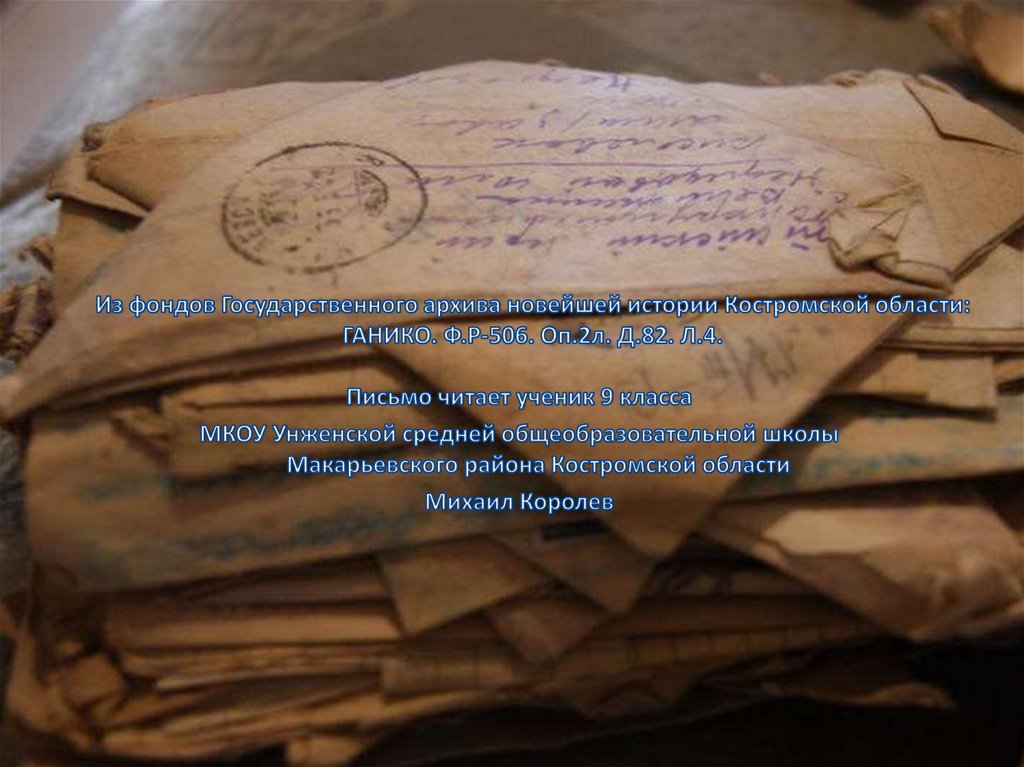 Из фондов Государственного архива новейшей истории Костромской области:
ГАНИКО. Ф.Р-506. Оп.2л. Д.82. Л.4.
Письмо читает ученик 9 класса
МКОУ Унженской средней общеобразовательной школы
Макарьевского района Костромской области
Михаил Королев